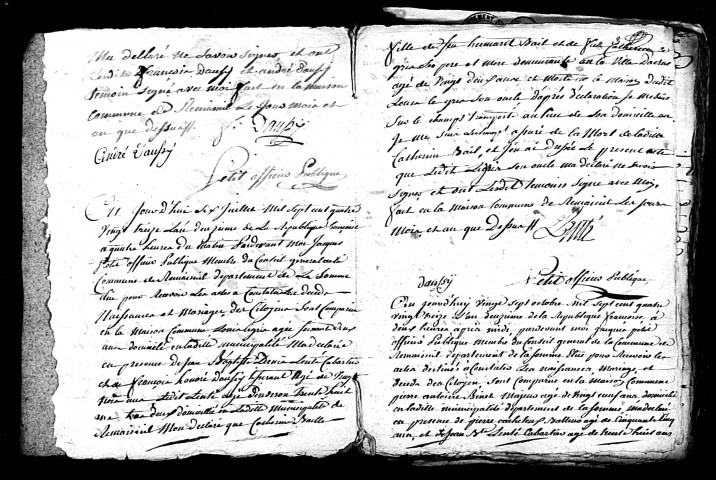 Ma declaré ne Savoir Signer et ont
Ledit françois Daussy et andré Daussy
Temoin Signé avec moi fait en la maison
Commune de Remaisnil Le Jour mois et
an que dessus
Daussy
André Daussy
Petit officier Publique
Cejourd'hui Six Juillet Mil Sept cent quatre
Vingt treize L'an deuxieme de La Republique francoise
a quatre heures du Matin Pardevant Moi Jacques
Petit officier Publique Membre du Conseil general de la
Commune de Remaisnil departement de La Somme
élue pour Recevoir Les actes a Constater Les decedes
Naissances et Mariages des Citoyens Sont Comparus
en la Maison Commune Louis Legris agée soixante deux
ans domicilié en Laditte municipalité Ma declaré
en presence de Jean Baptiste Lenté Cabartier
et de francois honoré Daussy agé de Vingt
trois ans Ledit Lenté age Denviron Trente huit
ans tous deux domicilié en Laditte Municipalité de
Remaisnil Mon declaré que Catherine Bail
fille de feu humart Bail et de feue Catherine
Legris Ses pere et mere demeurante en la Ville Darras
agé de Vingt deux ans est Morte le Matin dudit
Louis Le gris Son oncle daprès Declaration Je me suis
Sur le champs Transporté au lieu de Son domicille ou
Je me Suis assuré de la Mort de laditte
Catherine Bail et J'en ai Dressé Le present acte
que Ledit Legris Son oncle ma declaré ne Savoir
Signer et ont Ledit Temoins Signé avec Moi
fait en la Maison Commune de Remaisnil Les Jour
Mois et an que Dessus
Lenté
Daussy
Petit officier Publique
Cejourdhuy Vingt Sept octobre mil Sept cent quatre
Vingt treize L'an deuzieme de la Republique francoise a
deux heures après midi, pardevant moi jacques petit
officier Publique membre du Conseil general de la Commune de
Remaisnil departement de la Somme Elus pour Recevoir les
actes destinés a Constater Les naissances Mariage, et
decedes des Citoyens Sont Comparus en la maison Commune
pierre antoine Binet Majeur age de Vingt neuf ans domicilié
en laditte municipalité departement de la Somme, ma declaré
en presence de pierre Batteur agé de Cinquante Cinq
ans, et de Jean Bte Lenté Cabartier age de trente huit ans